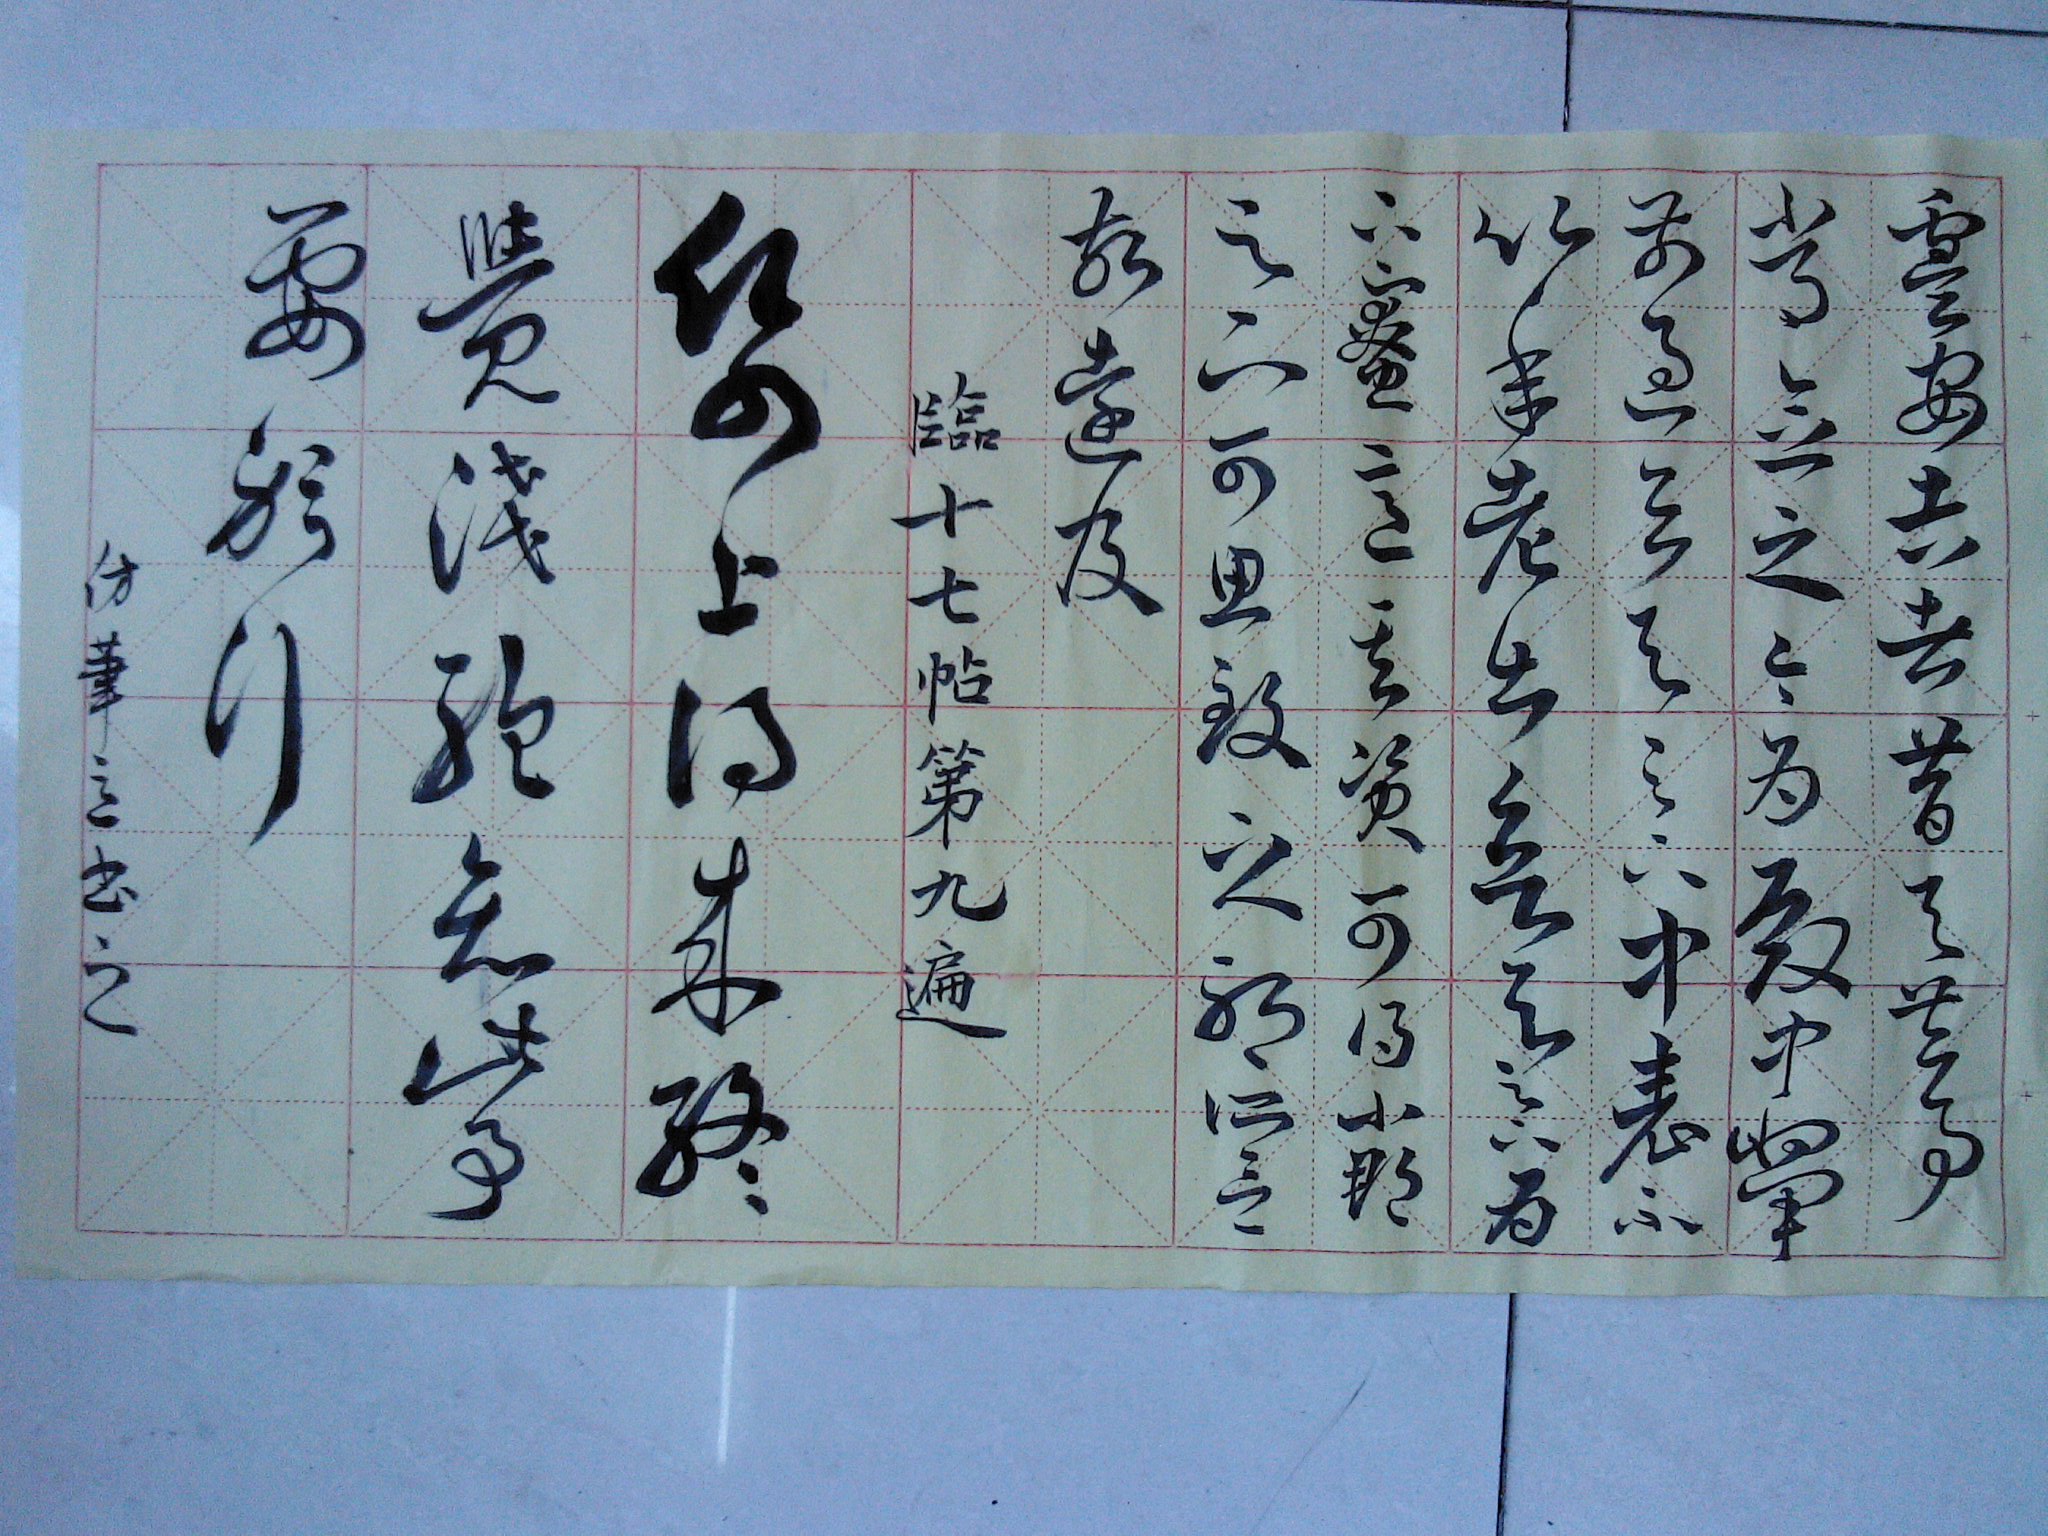 虞安吉者昔與共事
常念之今為殿中將軍
前過云與足下中表不
以年老甚欲與足下為
下寮意其資可得小郡
足下可思致之耶所念
故遠及
臨十七帖第九遍
紙上得来終
覺淺絕知此事
要躬行
仿筆意書之